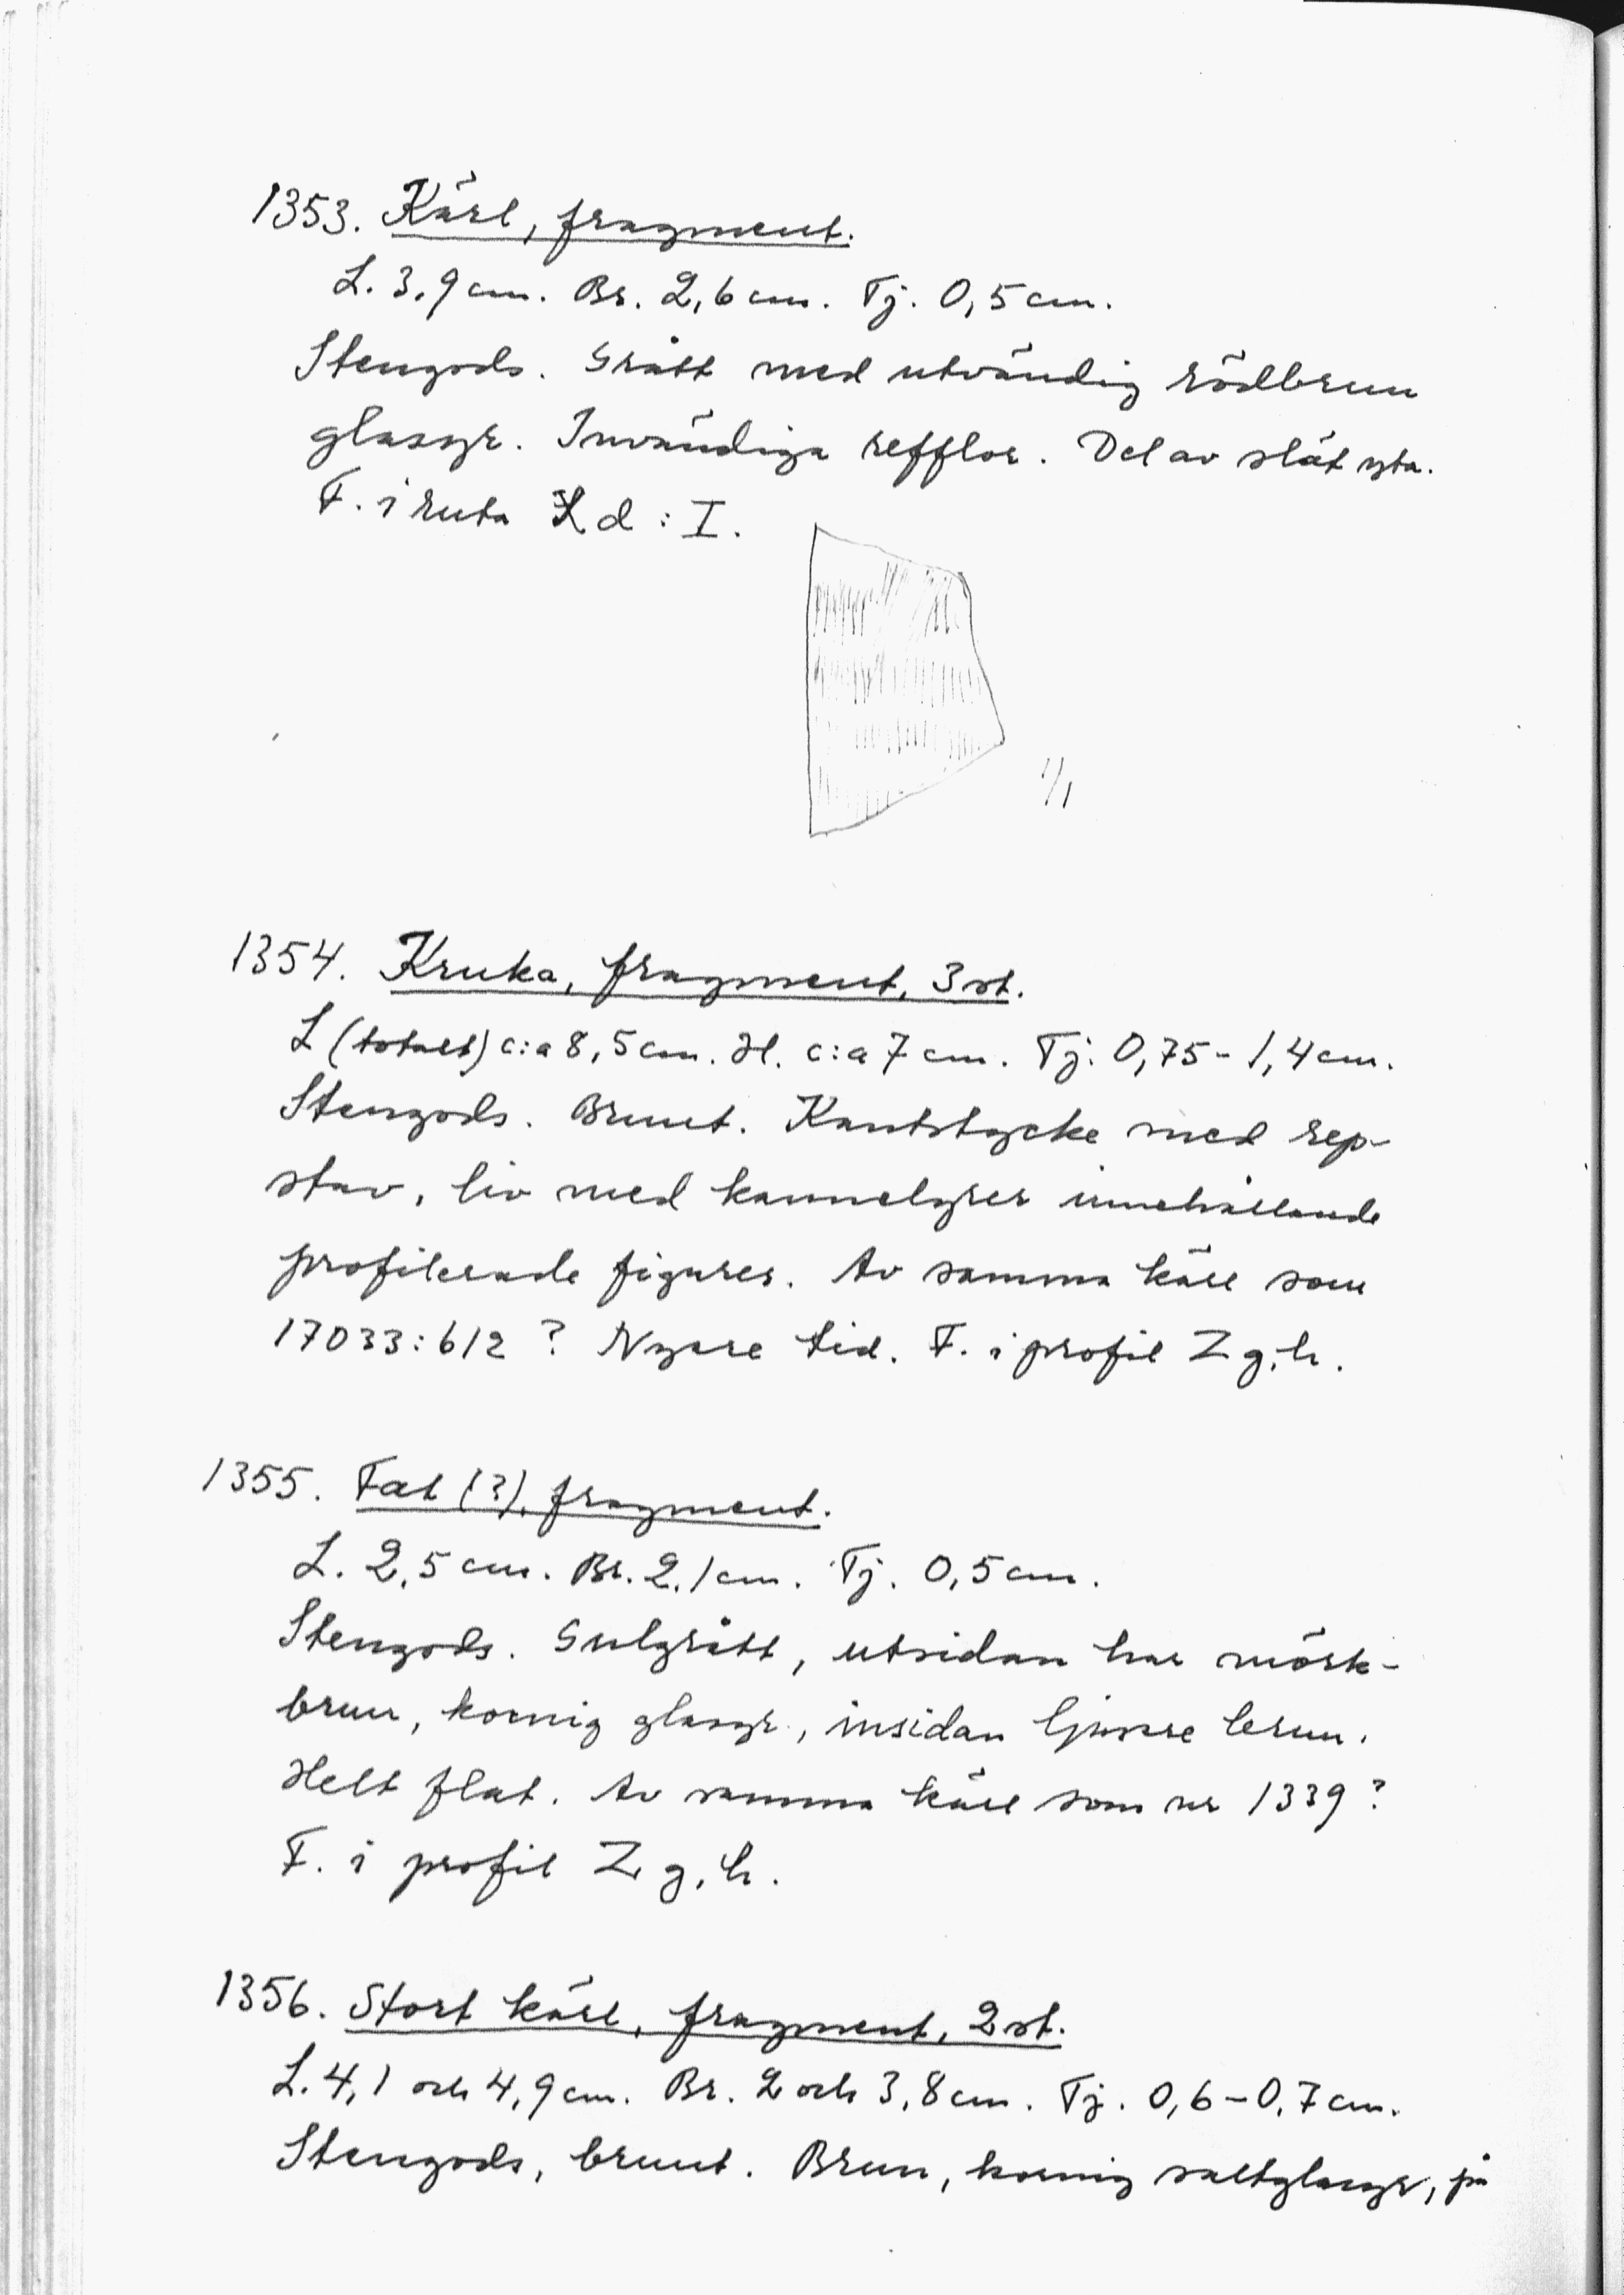 1353. Kärl, fragment.
L. 3,9 cm. Br. 2,6 cm. Tj. 0,5 cm.
Stengods. Grått med utvändig rödbrun
glasyr. Invändiga refflor. Del av slät yta.
F. i ruta X d : I.
1/1
1354. Kruka, fragment, 3 st.
L (totalt) c:a 8,5 cm. H. c:a 7 cm. Tj. 0,75 - 1,4 cm.
Stengods. Brunt. Kantstycke med rep-
stav, liv med kannelyrer innehållande
profilerade figurer. Av samma kärl som
17033:612 ? Nyare tid. F. i profil Z g, h.
1355. Fat (?), fragment.
L. 2,5 cm. Br. 2,1 cm. Tj. 0,5 cm.
Stengods. Gulgrått, utsidan har mörk-
brun, kornig glasyr, insidan ljusare brun.
Helt flat. Av samma kärl som nr 1339 ?
F. i profil Z g, h.
1356. Stort kärl, fragment, 2 st.
L. 4,1 och 4,9 cm. Br. 2 och 3,8 cm. Tj. 0,6 - 0,7 cm.
Stengods, brunt. Brun, kornig saltglasyr, på